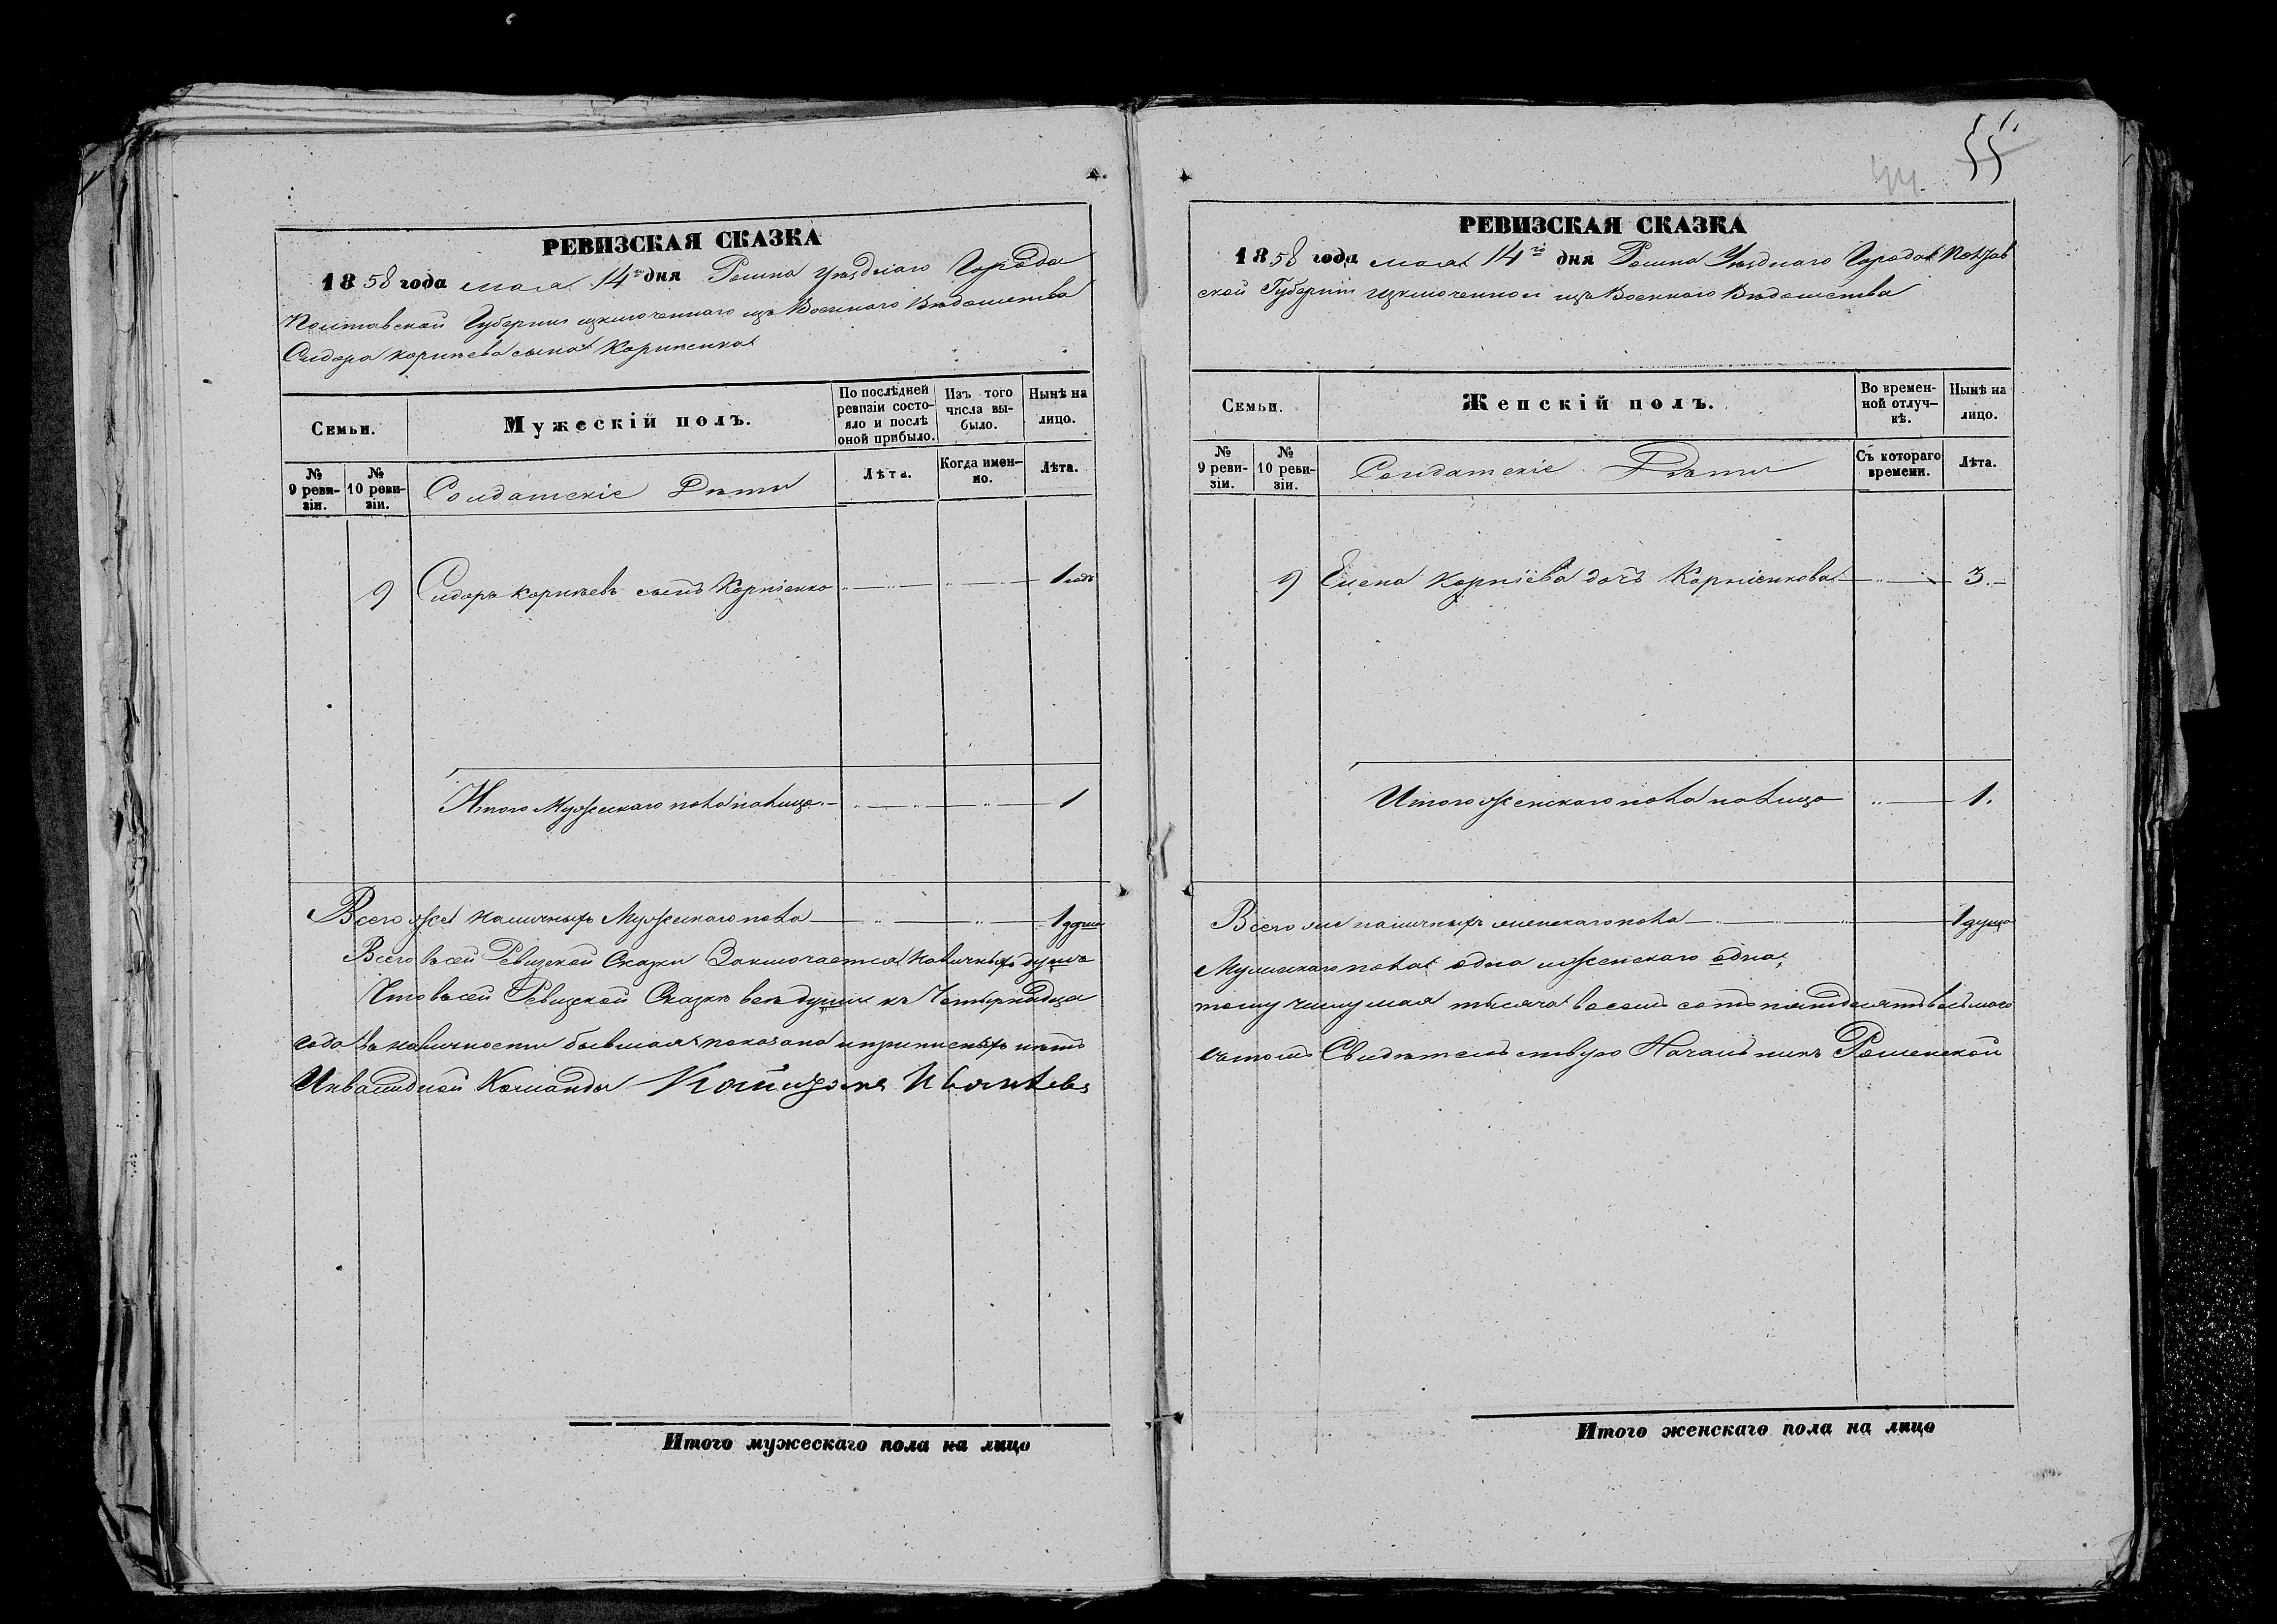 РЕВИЗСКАЯ СКАЗКА
1858 года мая 14го дня Ромна Уѣзднаго Города
Полтавской Губерніи изключеннаго изъ Военнаго Вѣдомства
Сидора Корнѣева сына Корниенка
Семьи.
Мужескій полъ.
По послѣдней ревизіи состояло и послѣ оной прибыло.
Изъ того числа выбыло.
Нынѣ на лицо.
№ 9 ревизіи.
№ 10 ревизіи.
Солдатскіе Дѣти
Лѣта.
Когда именно.
Лѣта.
9 Сидоръ Корнѣевъ сынъ Корніенко 1 годъ
Итого Мужескаго пола налицо 1
Всего же наличныхъ Мужескаго пола 1 душа
Всего в сей Ревизской Сказки Заключается Наличныхъ душъ
Что в сей Ревизской Сказке все души къ Четырнадца
года в наличности бывшая показана и прописныхъ нетъ
Инвалидной Команды
Итого мужескаго пола на лицо
55
44
РЕВИЗСКАЯ СКАЗКА
1858 года мая 14го дня Ромна Уѣзднаго Города Полтав
ской Губерніи изключенной изъ Военнаго Вѣдомства
Семьи.
Женскій полъ.
Во временной отлучкѣ.
Нынѣ на лицо.
№ 9 ревизіи.
№ 10 ревизіи.
Солдатскіе Дѣти
Съ котораго времени.
Лѣта.
9 Елена Корніева дочь Корніенкова 3
Итого женскаго пола налицо 1.
Всего же наличныхъ женскаго пола 1 душа
Мужескаго пола одна и женскаго одна,
тому числу мая тысяча восемь сотъ пятдесятъ восьмого
въ томъ Свидѣтельствую Начальникъ Роменской
Итого женскаго пола на лицо